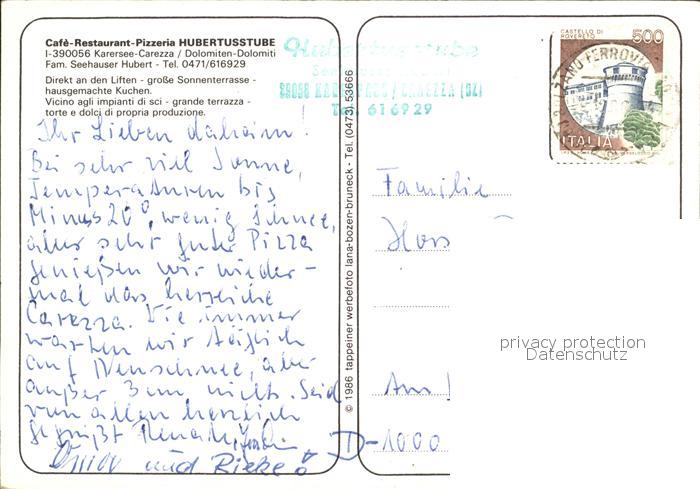 Cafè-Restaurant-Pizzeria HUBERTUSSTUBE
I-390056 Karersee-Carezza / Dolomiten-Dolomiti
Fam. Seehauser Hubert - Tel. 0471/616929
Direkt an den Liften - große Sonnenterrasse -
hausgemachte Kuchen.
Vicino agli impianti di sci - grande terrazza -
torte e dolci di propria produzione.
Ihr Lieben daheim!
Bei sehr viel Sonne,
Temperaturen bis
Minus 20°, wenig Schnee,
aber sehr guter Pizza
genießen wir wieder-
mal das herrliche
Carezza. Wie immer
warten wir täglich
auf Neuschnee, aber
außer 3 cm nichts. Seid
von allen herzlich
gegrüßt Renate,
und Rieke
© 1986 tappeiner werbefoto lana-bozen-bruneck - Tel. (0473) 53666
Hubertusstube
39056 KARERSEE / CAREZZA (BZ)
Tel. 616929
CASTELLO DI
ROVERETO
500
ITALIA
FERROVIA
Familie
Am
D-1000
privacy protection
Datenschutz